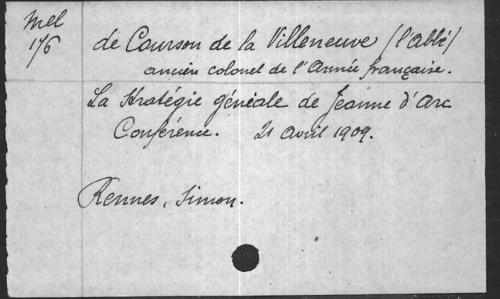 Mel
176
de Courson de la Villeneuve (l'abbé)
ancien colonel de l'Armée française.
La Stratégie géniale de Jeanne d'Arc
Conférence. 21 avril 1909.
Rennes, Simon.